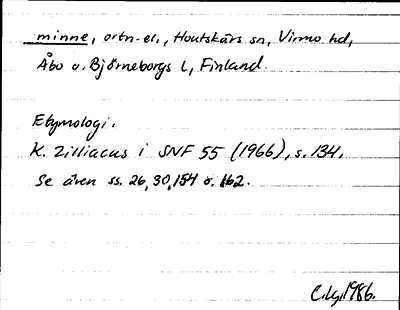 minne, ortn.-el., Houtskärs sn, Virmo hd,
Åbo o. Björneborgs l, Finland.
Etymologi.
K. Zilliacus i SNF 55 (1966), s. 134.
Se även ss. 26, 30, 154 o. 162.
C.Lg. 1986.